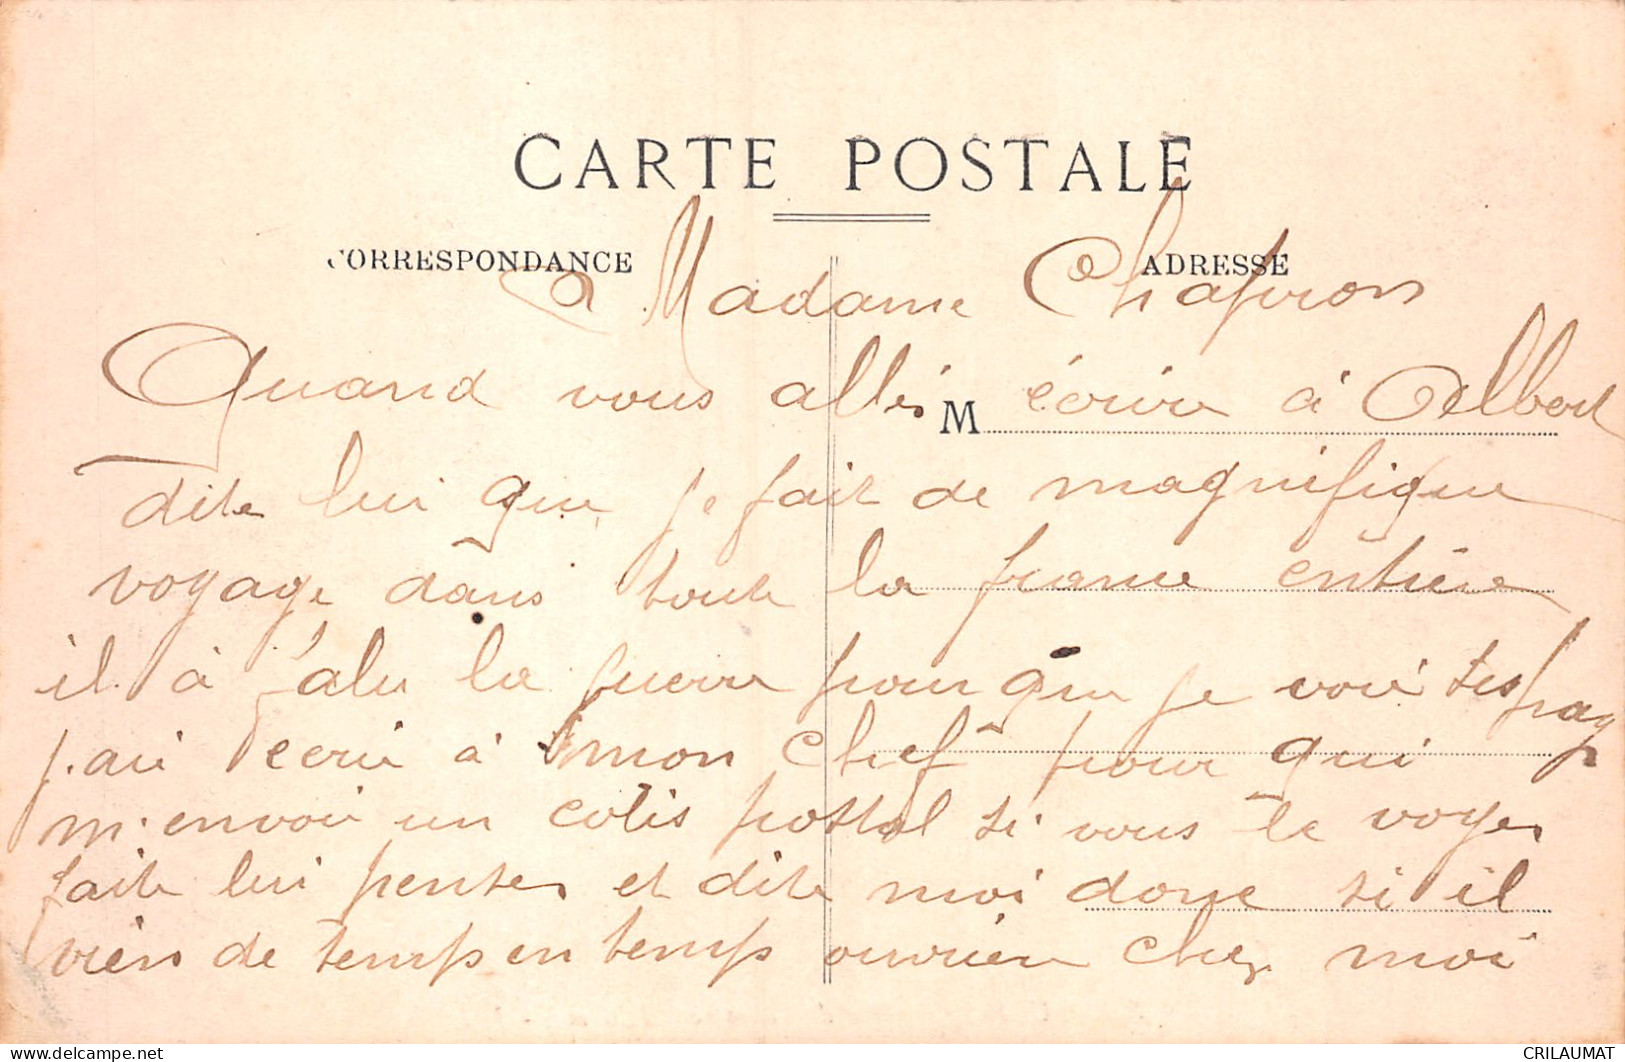 CARTE POSTALE
CORRESPONDANCE
ADRESSE
a Madame Chapiron
M
Quand vous allés écrire à Albert
dite lui que je fait de magnifique
voyage dans toute la france entière
il à falu la guerre pour que je voie ses pay
j'ai écrit à mon chef pour qui
m'envoie un colis postal si vous le voyer
faite lui penser et dite moi donc si il
vien de temps en temps ouvrier chez moi
CRILAUMAT